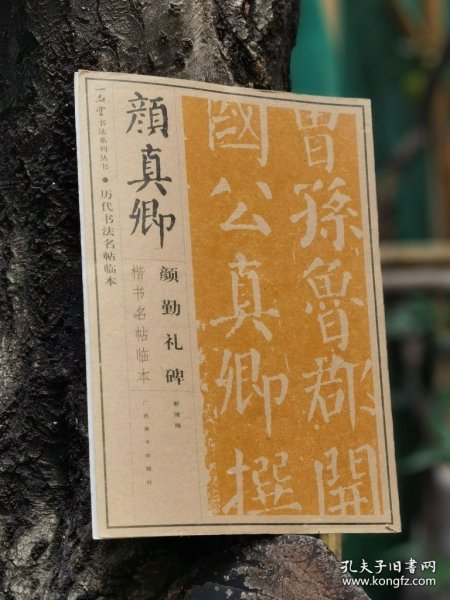 一品堂书法系列丛书●历代书法名帖临本
顔真卿
颜勤礼碑
楷书名帖临本
广西美术出版社
曾孫魯郡開
國公真卿撰
孔夫子旧书网
www.kongfz.com